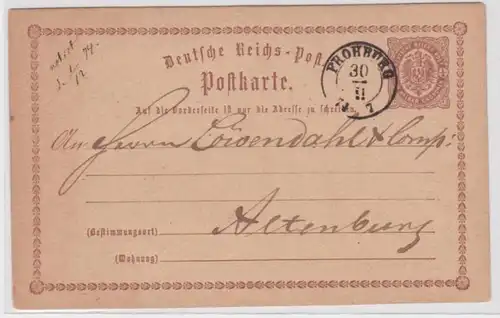 Deutsche Reichs-Post
Postkarte.
FROHBURG
30
11
7
Auf die Vorderseite ist nur die Adresse zu schreiben.
An Herrn Löwendahl & Comp.
Altenburg
(Bestimmungsort)
(Wohnung)